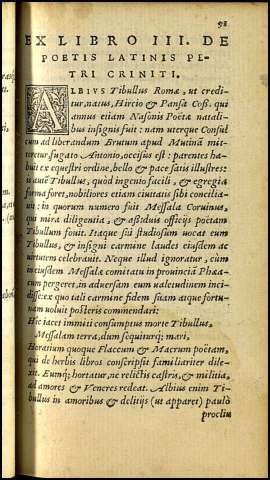 98
EX LIBRO III. DE
POETIS LATINIS PE-
TRI CRINITI.
ALBIVS Tibullus Romæ, ut credi-
tur, natus, Hircio & Pansa Coß. qui
annus etiam Nasonis Poëtæ natali-
bus insignis fuit: nam uterque Consul
cum ad liberandum Brutum apud Mutinā mit-
teretur, fugato Antonio, occisus est: parentes ha-
buit ex equestri ordine, bello & pace satis illustres:
Tibullus, quòd ingenio facili, & egregia
forma foret, nobiliores etiam ciuitatis sibi concilia
uit: in quorum numero fuit Messala Coruinus,
qui mira diligentia, & aßiduis officijs poëtam
Tibullum fouit. Itaque sui studiosum uocat eum
Tibullus, & insigni carmine laudes eiusdem ac
uirtutem celebrauit. Neque illud ignoratur, cùm
in eiusdem Messalæ comitatu in prouinciā Phæa-
cum pergeret, in aduersam eum ualetudinem inci-
disse: ex quo tali carmine fidem suam atque fortu-
nam uoluit posteris commendari:
Hic iacet immiti consumptus morte Tibullus,
Messalam terra, dum sequiturq; mari,
Horatium quoque Flaccum & Macrum poëtam,
qui de herbis libros conscripsit familiariter dile-
xit. Eumq; hortatur, ut relictis castris, & militia,
ad amores & Veneres redeat. Albius enim Ti-
bullus in amoribus & delitijs (ut apparet) paulò
procliu